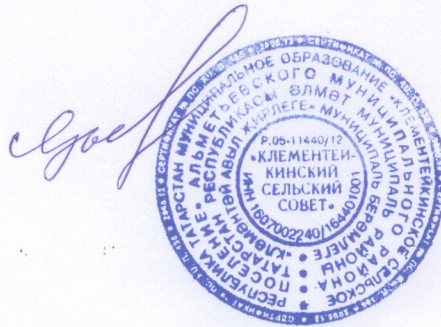 РЕСПУБЛИКА ТАТАРСТАН МУНИЦИПАЛЬНОЕ ОБРАЗОВАНИЕ «КЛЕМЕНТЕЙКИНСКОЕ СЕЛЬСКОЕ
ПОСЕЛЕНИЕ АЛЬМЕТЬЕВСКОГО МУНИЦИПАЛЬНОГО РАЙОНА
ТАТАРСТАН РЕСПУБЛИКАСЫ ӘЛМӘТ МУНИЦИПАЛЬ РАЙОНЫ
АВЫЛ ҖИРЛЕГЕ» МУНИЦИПАЛЬ БЕРӘМЛЕГЕ
Р.05-11440/12
«КЛЕМЕНТЕЙ-
КИНСКИЙ
СЕЛЬСКИЙ
СОВЕТ»
ИНН 1607002240/164401001